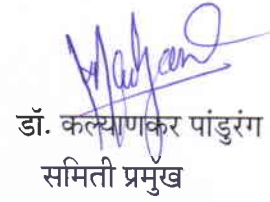 डॉ. कल्याणकर पांडुरंग
समिती प्रमुख